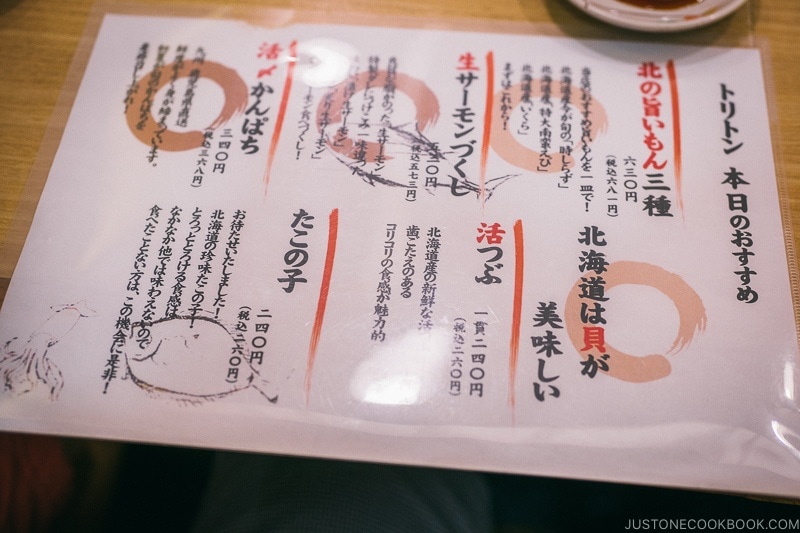 トリトン 本日のおすすめ
北の旨いもん三種
六三〇円
(税込六八一円)
当店のおすすめ旨いもんを一皿で!
北海道産今が旬の「時しらず」
北海道産「特大南蛮えび」
北海道産「いくら」
まずはこれから!
生サーモンづくし
(税込五七三円)
サーモン食べつくし!
活〆かんぱち
三四〇円
(税込三六八円)
北海道は貝が
美味しい
活つぶ
一貫二四〇円
(税込二六〇円)
北海道産の新鮮な活
歯ごたえのある
コリコリの食感が魅力的
たこの子
二四〇円
(税込二六〇円)
お待たせいたしました!
北海道の珍味たこの子!
とろっととろける食感は
なかなか他では味わえないので
食べたことない方は、この機会に是非!
JUSTONECOOKBOOK.COM